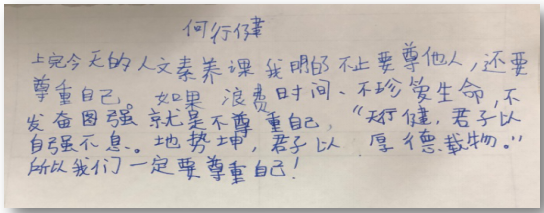 何行健
上完今天的人文素养课我明的不止要尊他人，还要
尊重自己。如果浪费时间、不珍爱生命，不
发奋图强就是不尊重自己，“天行健，君子以
自强不息。地势坤，君子以厚德载物。”
所以我们一定要尊重自己！